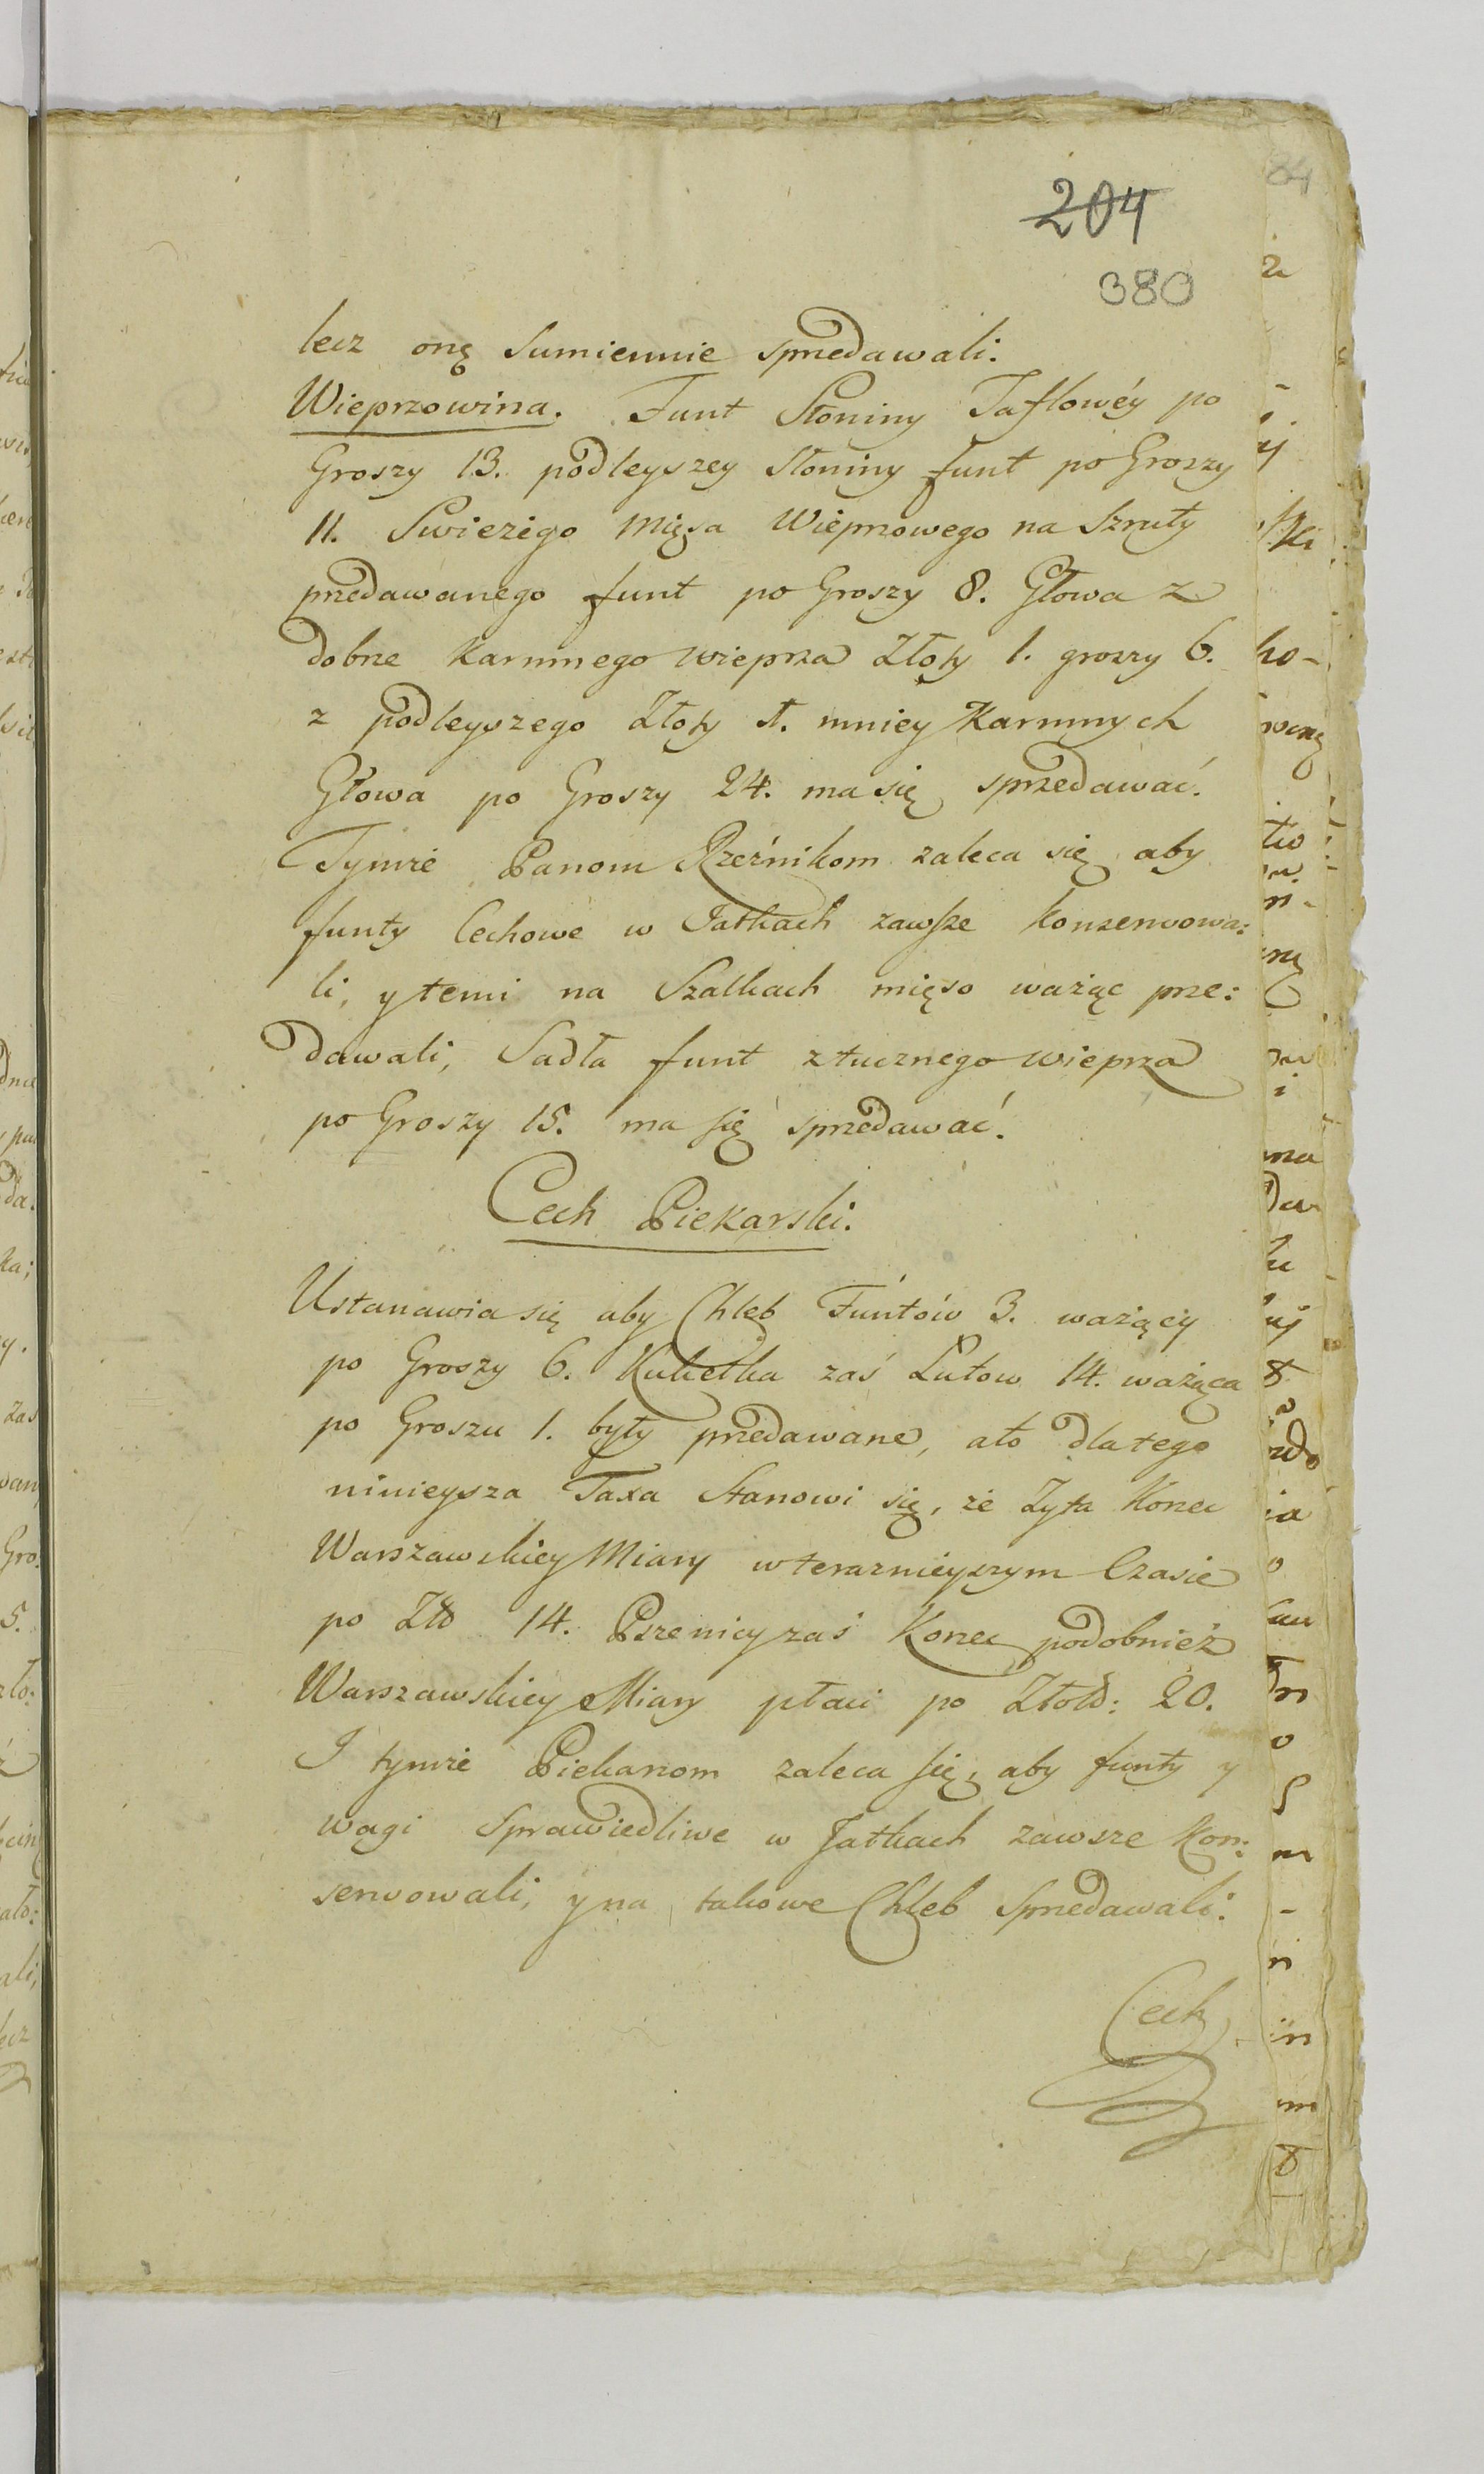 84
204
380
lecz onę Sumiennie sprzedawali.
Wieprzowina. Funt Słoniny Taflowéy po
Groszy 13. podleyszey Słoniny funt po Groszy
11. Swieżego Mięsa Wieprzowego na Sznuty
przedawanego funt po Groszy 8. Głowa z
dobrze Karmnego wieprza Złoty 1. groszy 6.
z podleyszego Złoty 1. mniey Karmnych
Głowa po Groszy 24. ma się sprzedawać.
Tymże Panom Rzeźnikom zaleca się aby
funty Cechowe w Jatkach zawsze konserwowa:
li, y temi na Szalkach mięso ważąc prze:
dawali, Sadła funt z tucznego wieprza
po Groszy 15. ma się sprzedawać.
Cech Piekarski.
Ustanawia się aby Chleb Funtów 3. ważący
po Groszy 6. Kukiełka zaś Łutow 14. ważąca
po Groszu 1. były przedawane, a to dla tego
ninieysza Taxa Stanowi się, że Żyta Korzec
Warszawskiey Miary w terazneyszym Czasie
po Złło 14. Pszenicy zaś Korzec podobnież
Warszawskiey Miary płaci po Złotł: 20.
I tymże Piekarzom zaleca się, aby funty y
wagi Sprawiedliwe w Jatkach zawsze Kon:
serwowali, y na takowe Chleb Sprzedawali.
Cech